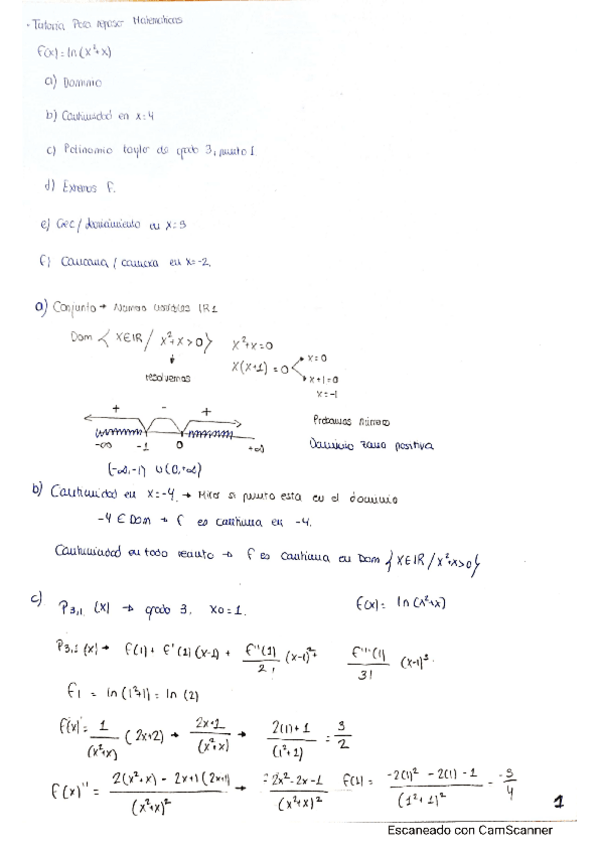 - Tutoria Para repasar Matemáticas
f(x) = ln(x²+x)
a) Dominio
b) Continuidad en x=4
c) Polinomio taylor de grado 3, punto 1.
d) Extremos f.
e) Crec / decrecimiento en x=3
f) Concava / convexa en x=-2.
a) Conjunto → Normas variables IR1
Dom { X∈IR / x²+x>0 } x²+x=0
x(x+1)=0 x=0
x+1=0
x=-1
resolvemos
+ - +
-∞ -1 0 +∞
Probamos número
Dominio zona positiva
(-∞,-1) ∪ (0,+∞)
b) Continuidad en x=-4. → Mirar si punto esta en el dominio
-4 ∈ Dom → f es continua en -4.
Continuidad en todo → f es continua en Dom { X∈IR / x²+x>0 }
c) P3,1 (x) → grado 3. x0=1. f(x)= ln(x²+x)
P3,1 (x) → f(1) + f'(1) (x-1) + f''(1)/2! (x-1)²+ f'''(1)/3! (x-1)³
f1 = ln(1²+1) = ln(2)
f'(x)= 1/(x²+x) (2x+2) → 2x+1/(x²+x) → 2(1)+1/(1²+1) = 3/2
f(x)'' = 2(x²+x) - 2x+1(2x+1)/(x²+x)² → -2x²-2x-1/(x²+x)² f(1)= -2(1)²-2(1)-1/(1²+1)² = -5/4
1
Escaneado con CamScanner